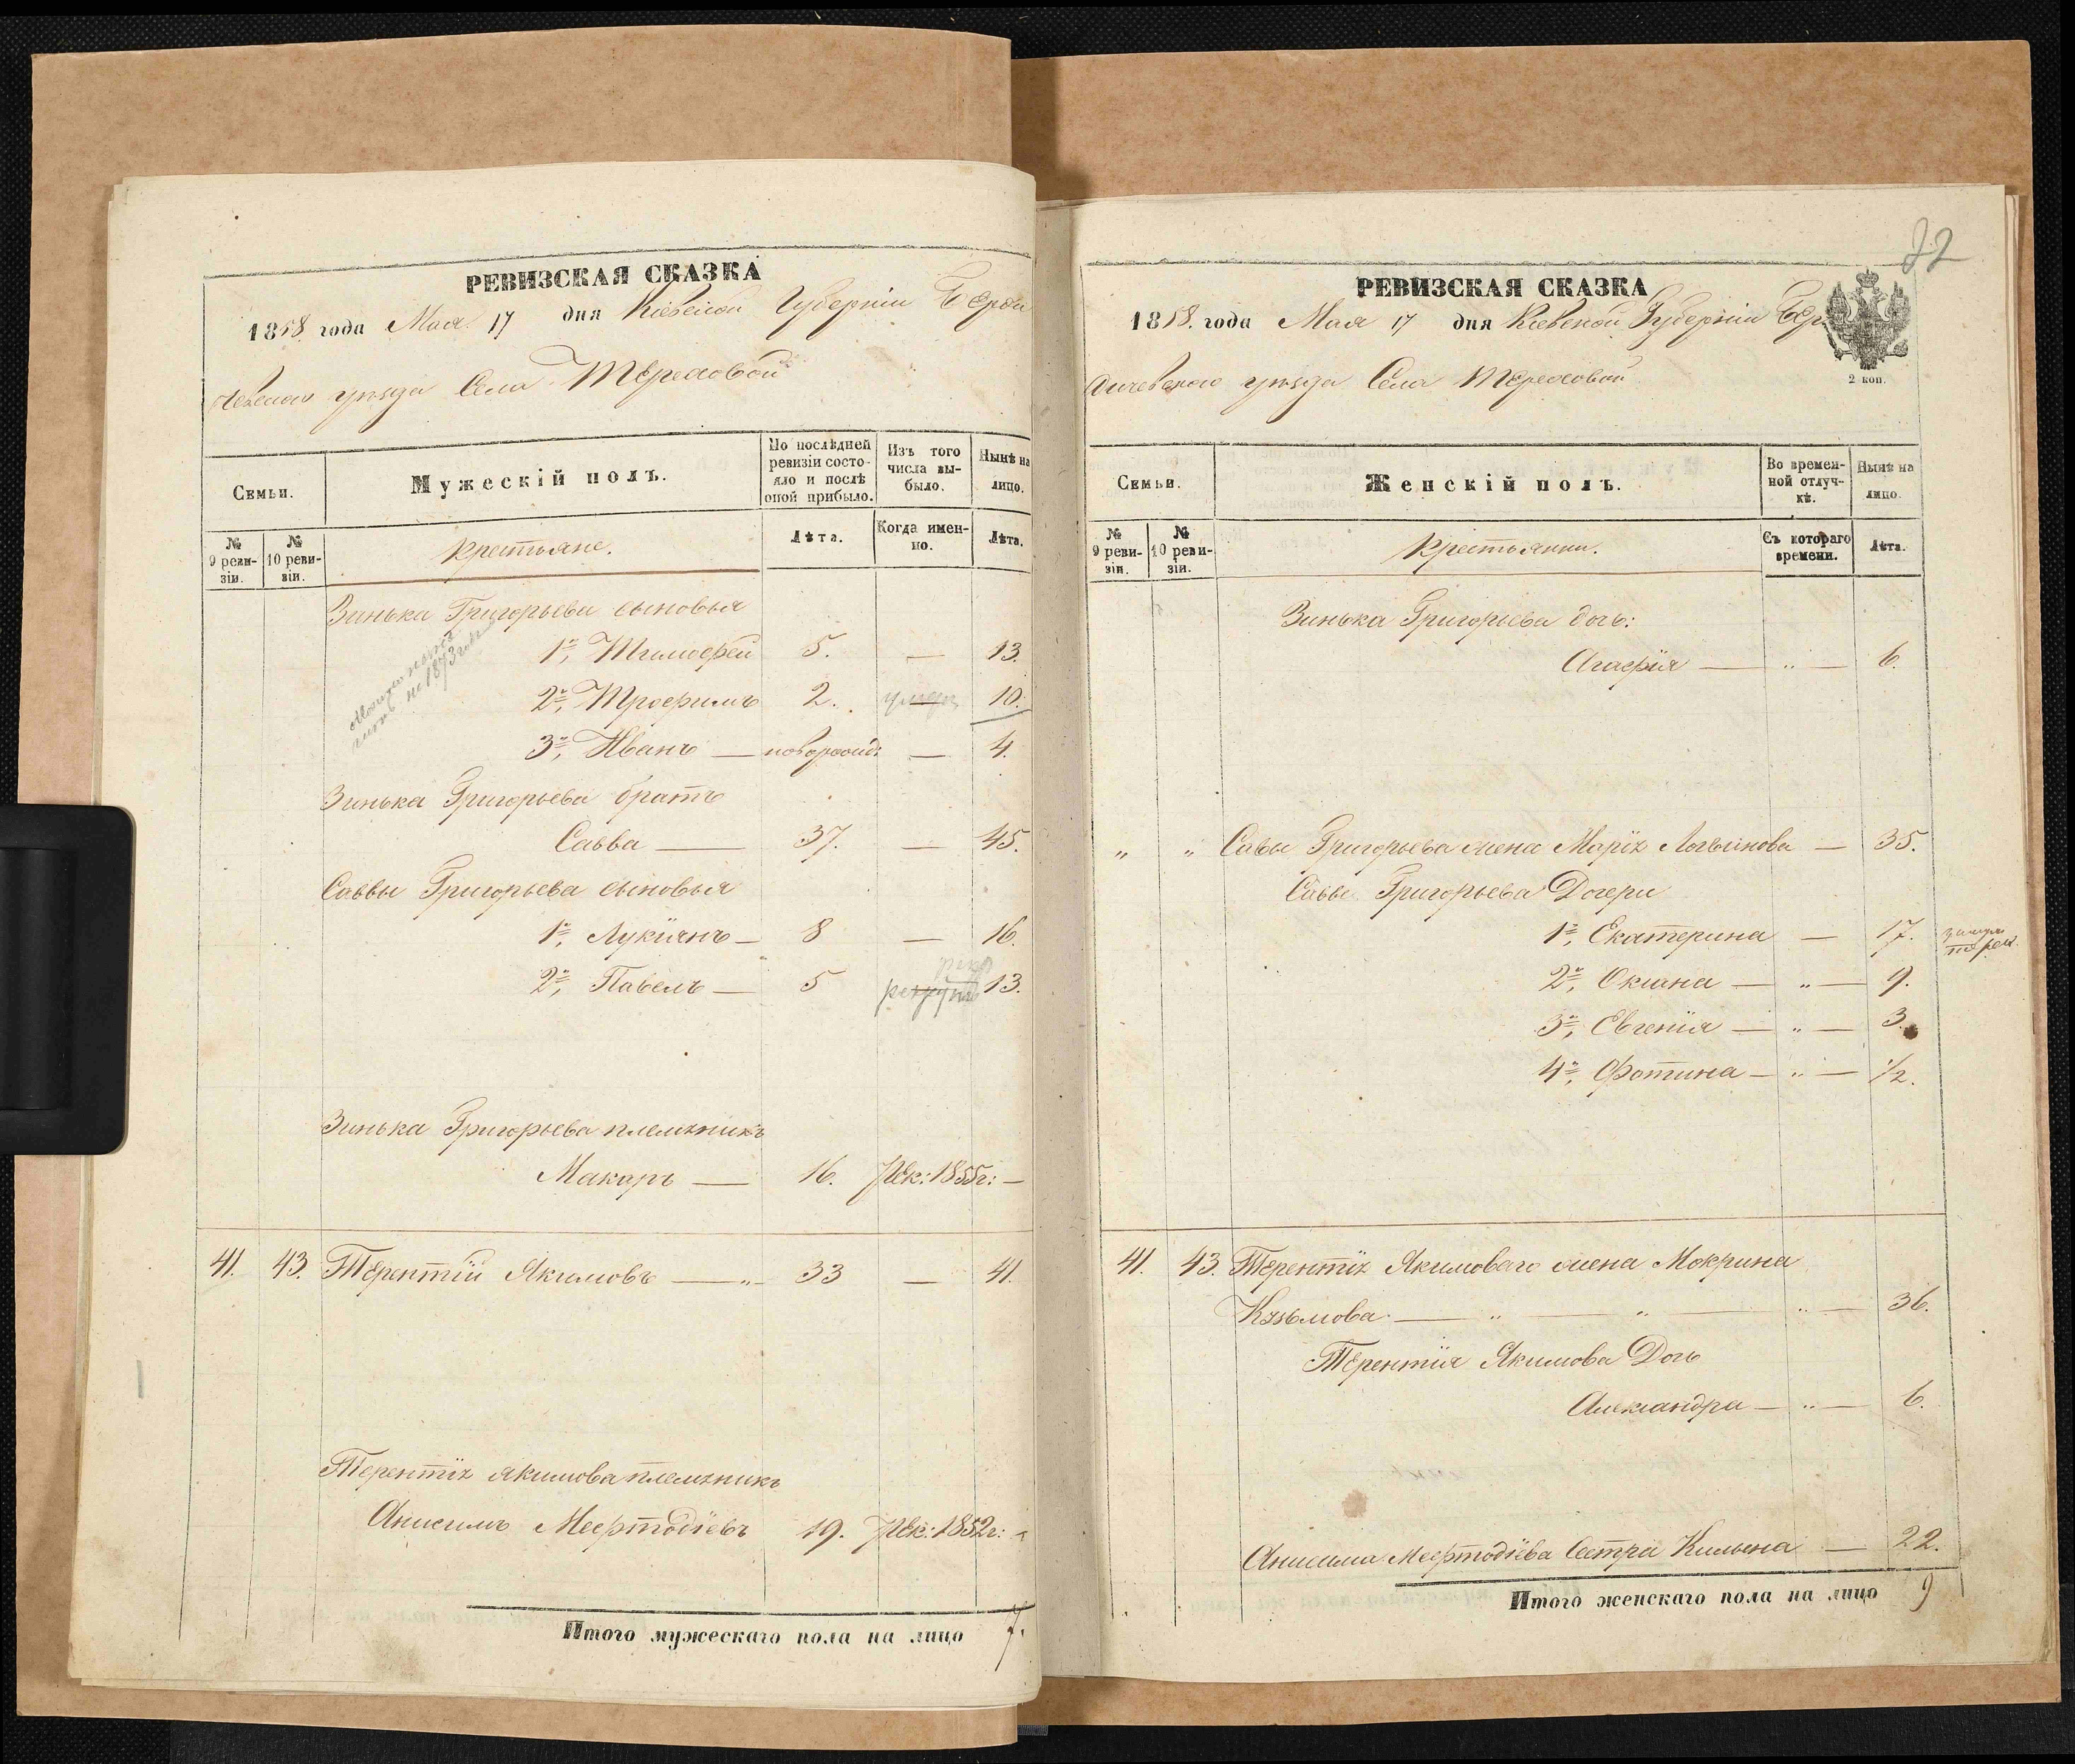 РЕВИЗСКАЯ СКАЗКА
1858. года Мая 17 дня Кіевской Губерніи Берди
чевскаго уѣзда Села Тереховой
Семьи.
Мужескій полъ.
По послѣдней ревизіи состояло и послѣ оной прибыло.
Изъ того числа выбыло.
Нынѣ на лицо.
№ 9 ревизіи.
№ 10 ревизіи.
Крестьяне.
Лѣта.
Когда именно.
Лѣта.
Зинька Григорьева сыновья
1й, Тимофей 5. — 13.
2й, Трофимъ 2. умеръ 10.
3й, Иванъ — новорожд: — 4.
на 1873
Зинька Григорьева братъ
Савва — 37. — 45.
Саввы Григорьева сыновья
1й, Лукіянъ — 8 — 16.
рек
2й, Павелъ — 5 рекрутъ 13.
Зинька Григорьева племянникъ
Макаръ — 16. Рек: 1855г: —
41. 43. Терентій Якимовъ — „ — 33 — 41.
Терентія Якимова племянникъ
Анисимъ 19. Рек: 1852г: -
Итого мужескаго пола на лицо 7.
32
РЕВИЗСКАЯ СКАЗКА
1858. года Мая 17 дня Кіевской Губерніи Бер
дичевскаго уѣзда Села Тереховой
2 коп.
Семьи.
Женскій полъ.
Во временной отлучкѣ.
Нынѣ на лицо.
№ 9 ревизіи.
№ 10 ревизіи.
Крестьянки.
Съ котораго времени.
Лѣта.
Зинька Григорьева дочь:
Агафія — „ — 6.
„ „ Савы Григорьева жена Марія Логвинова — 35.
Саввы Григорьева Дочери
1я, Екатерина — 17.
2я, Оксана — „ — 9.
3я, Евгенія — „ — 3.
4я, Фотина — „ — 1/2.
41. 43. Терентія Якимоваго жена Мокрина
Кузьмова — „ — „ — „ — 36.
Терентія Якимова Дочь
Александра — „ — 6.
Анисима Сестра — 22.
Итого женскаго пола на лицо 9